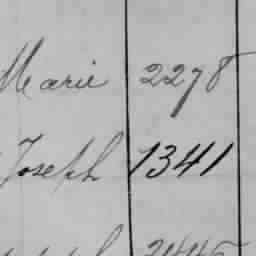 Marie 2278
Joseph 1341